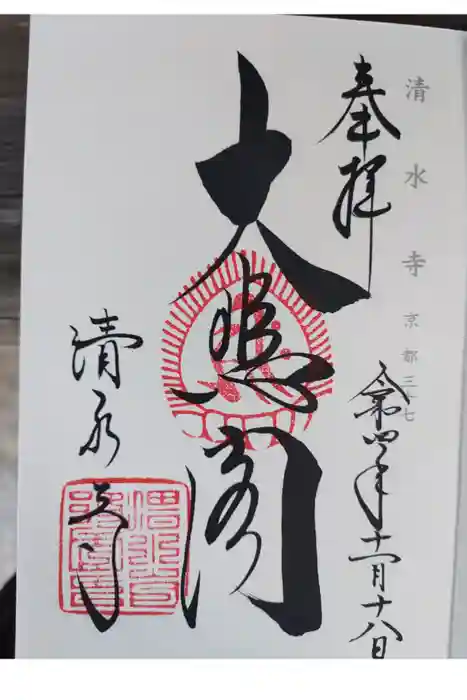 清水寺 京都
奉拝
令和四年十一月十八日
大悲閣
清水寺